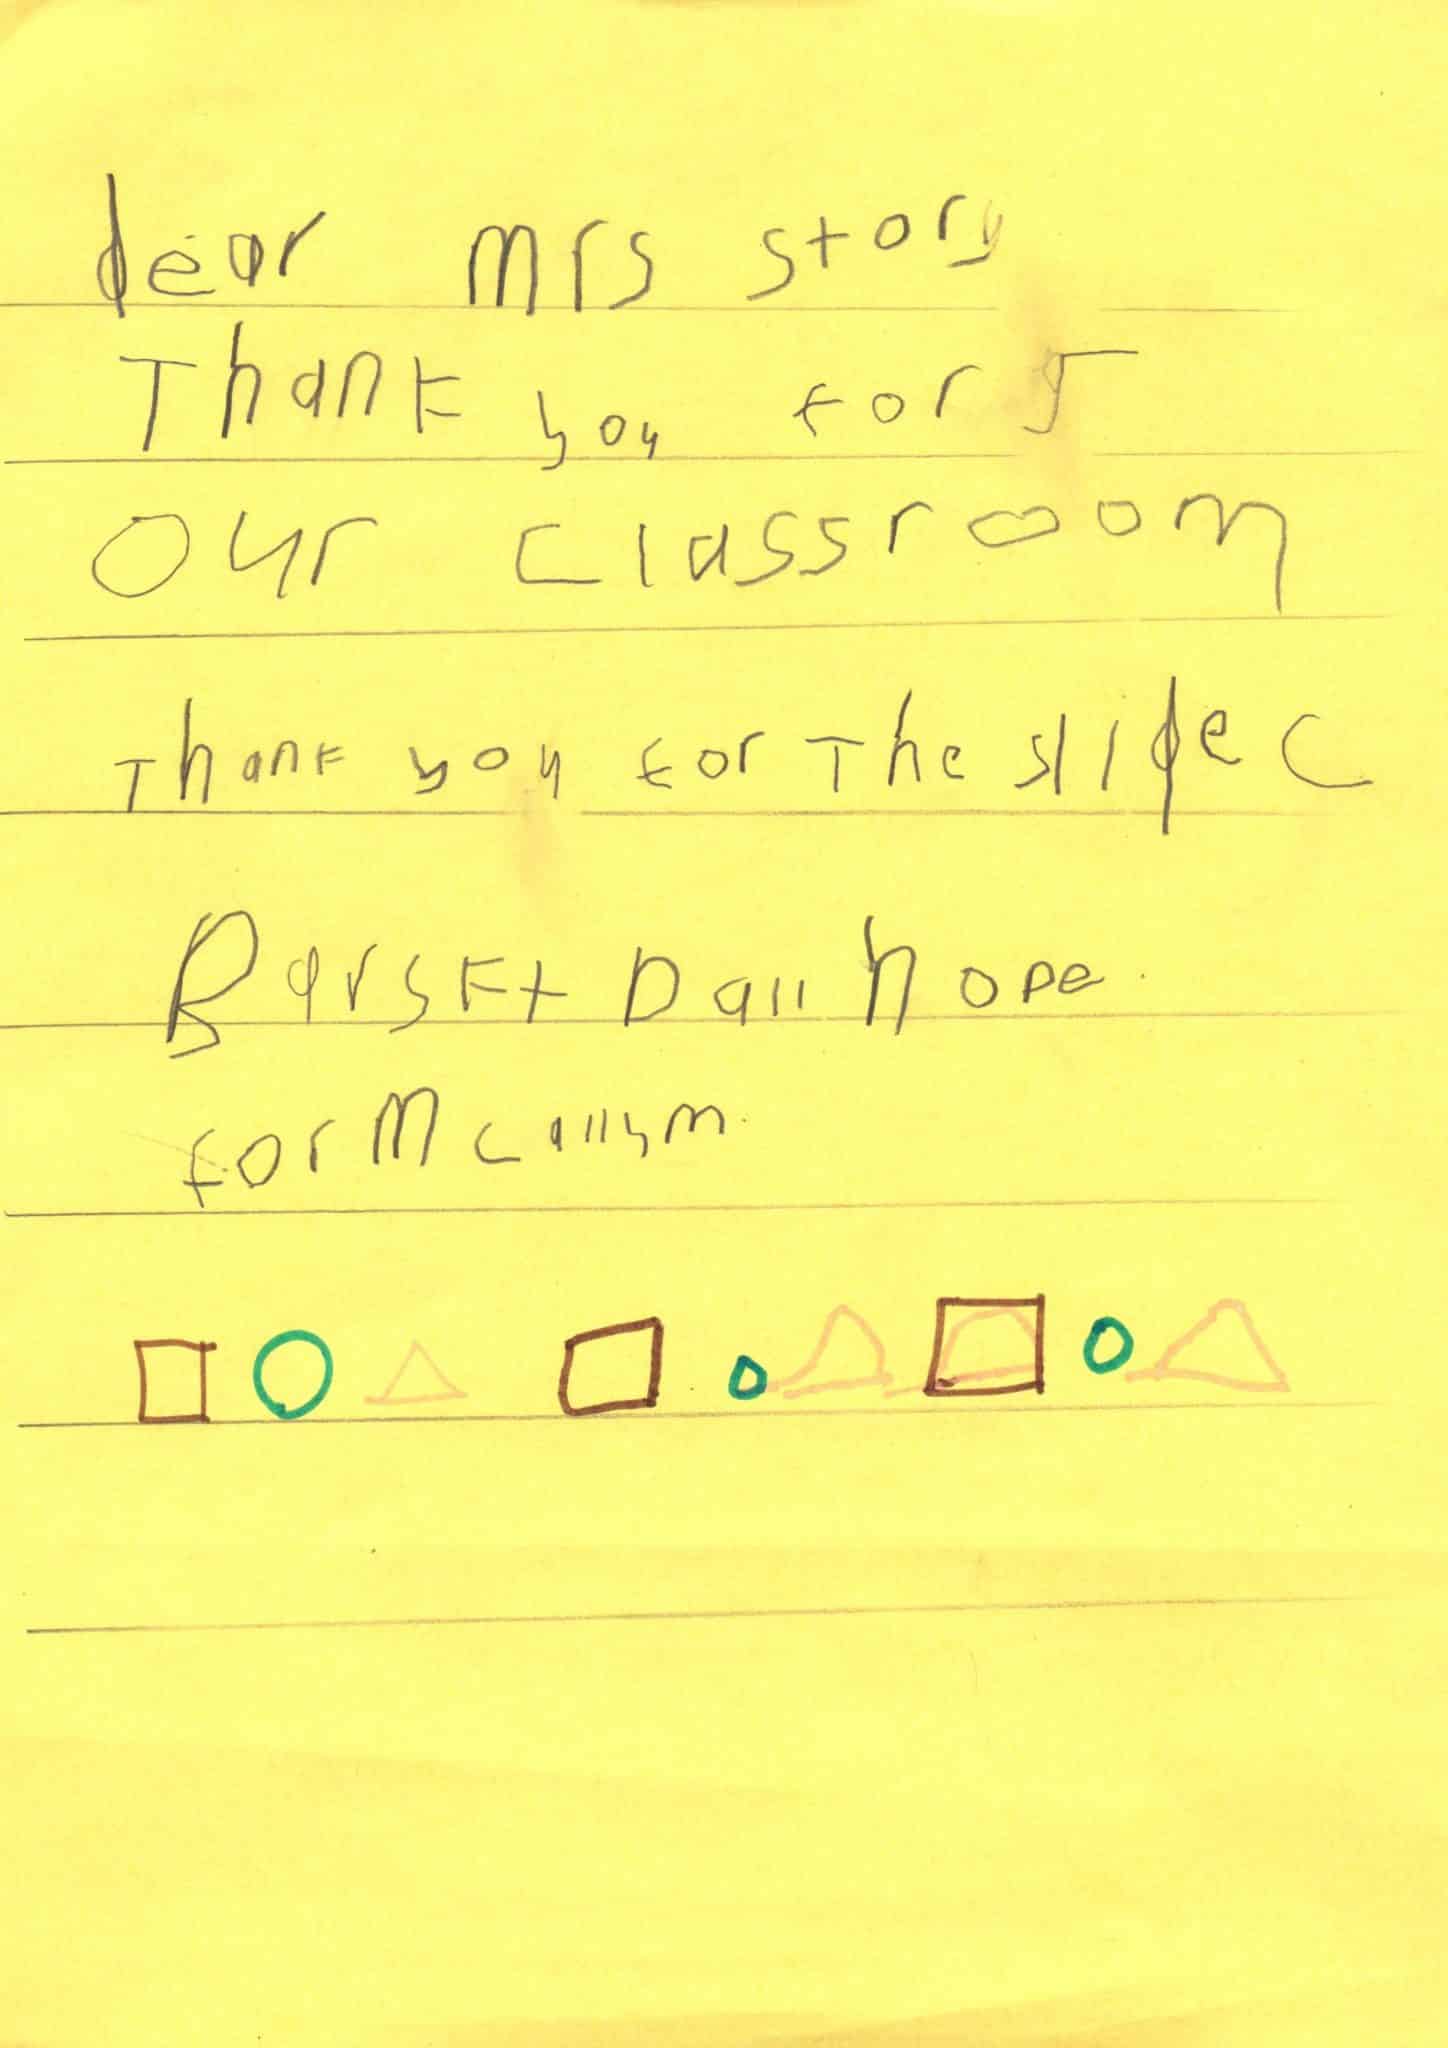 dear mrs story
Thank you for 5
our classroom
Thank you for The slide C
Barskt Ball hope.
for Mcallym.